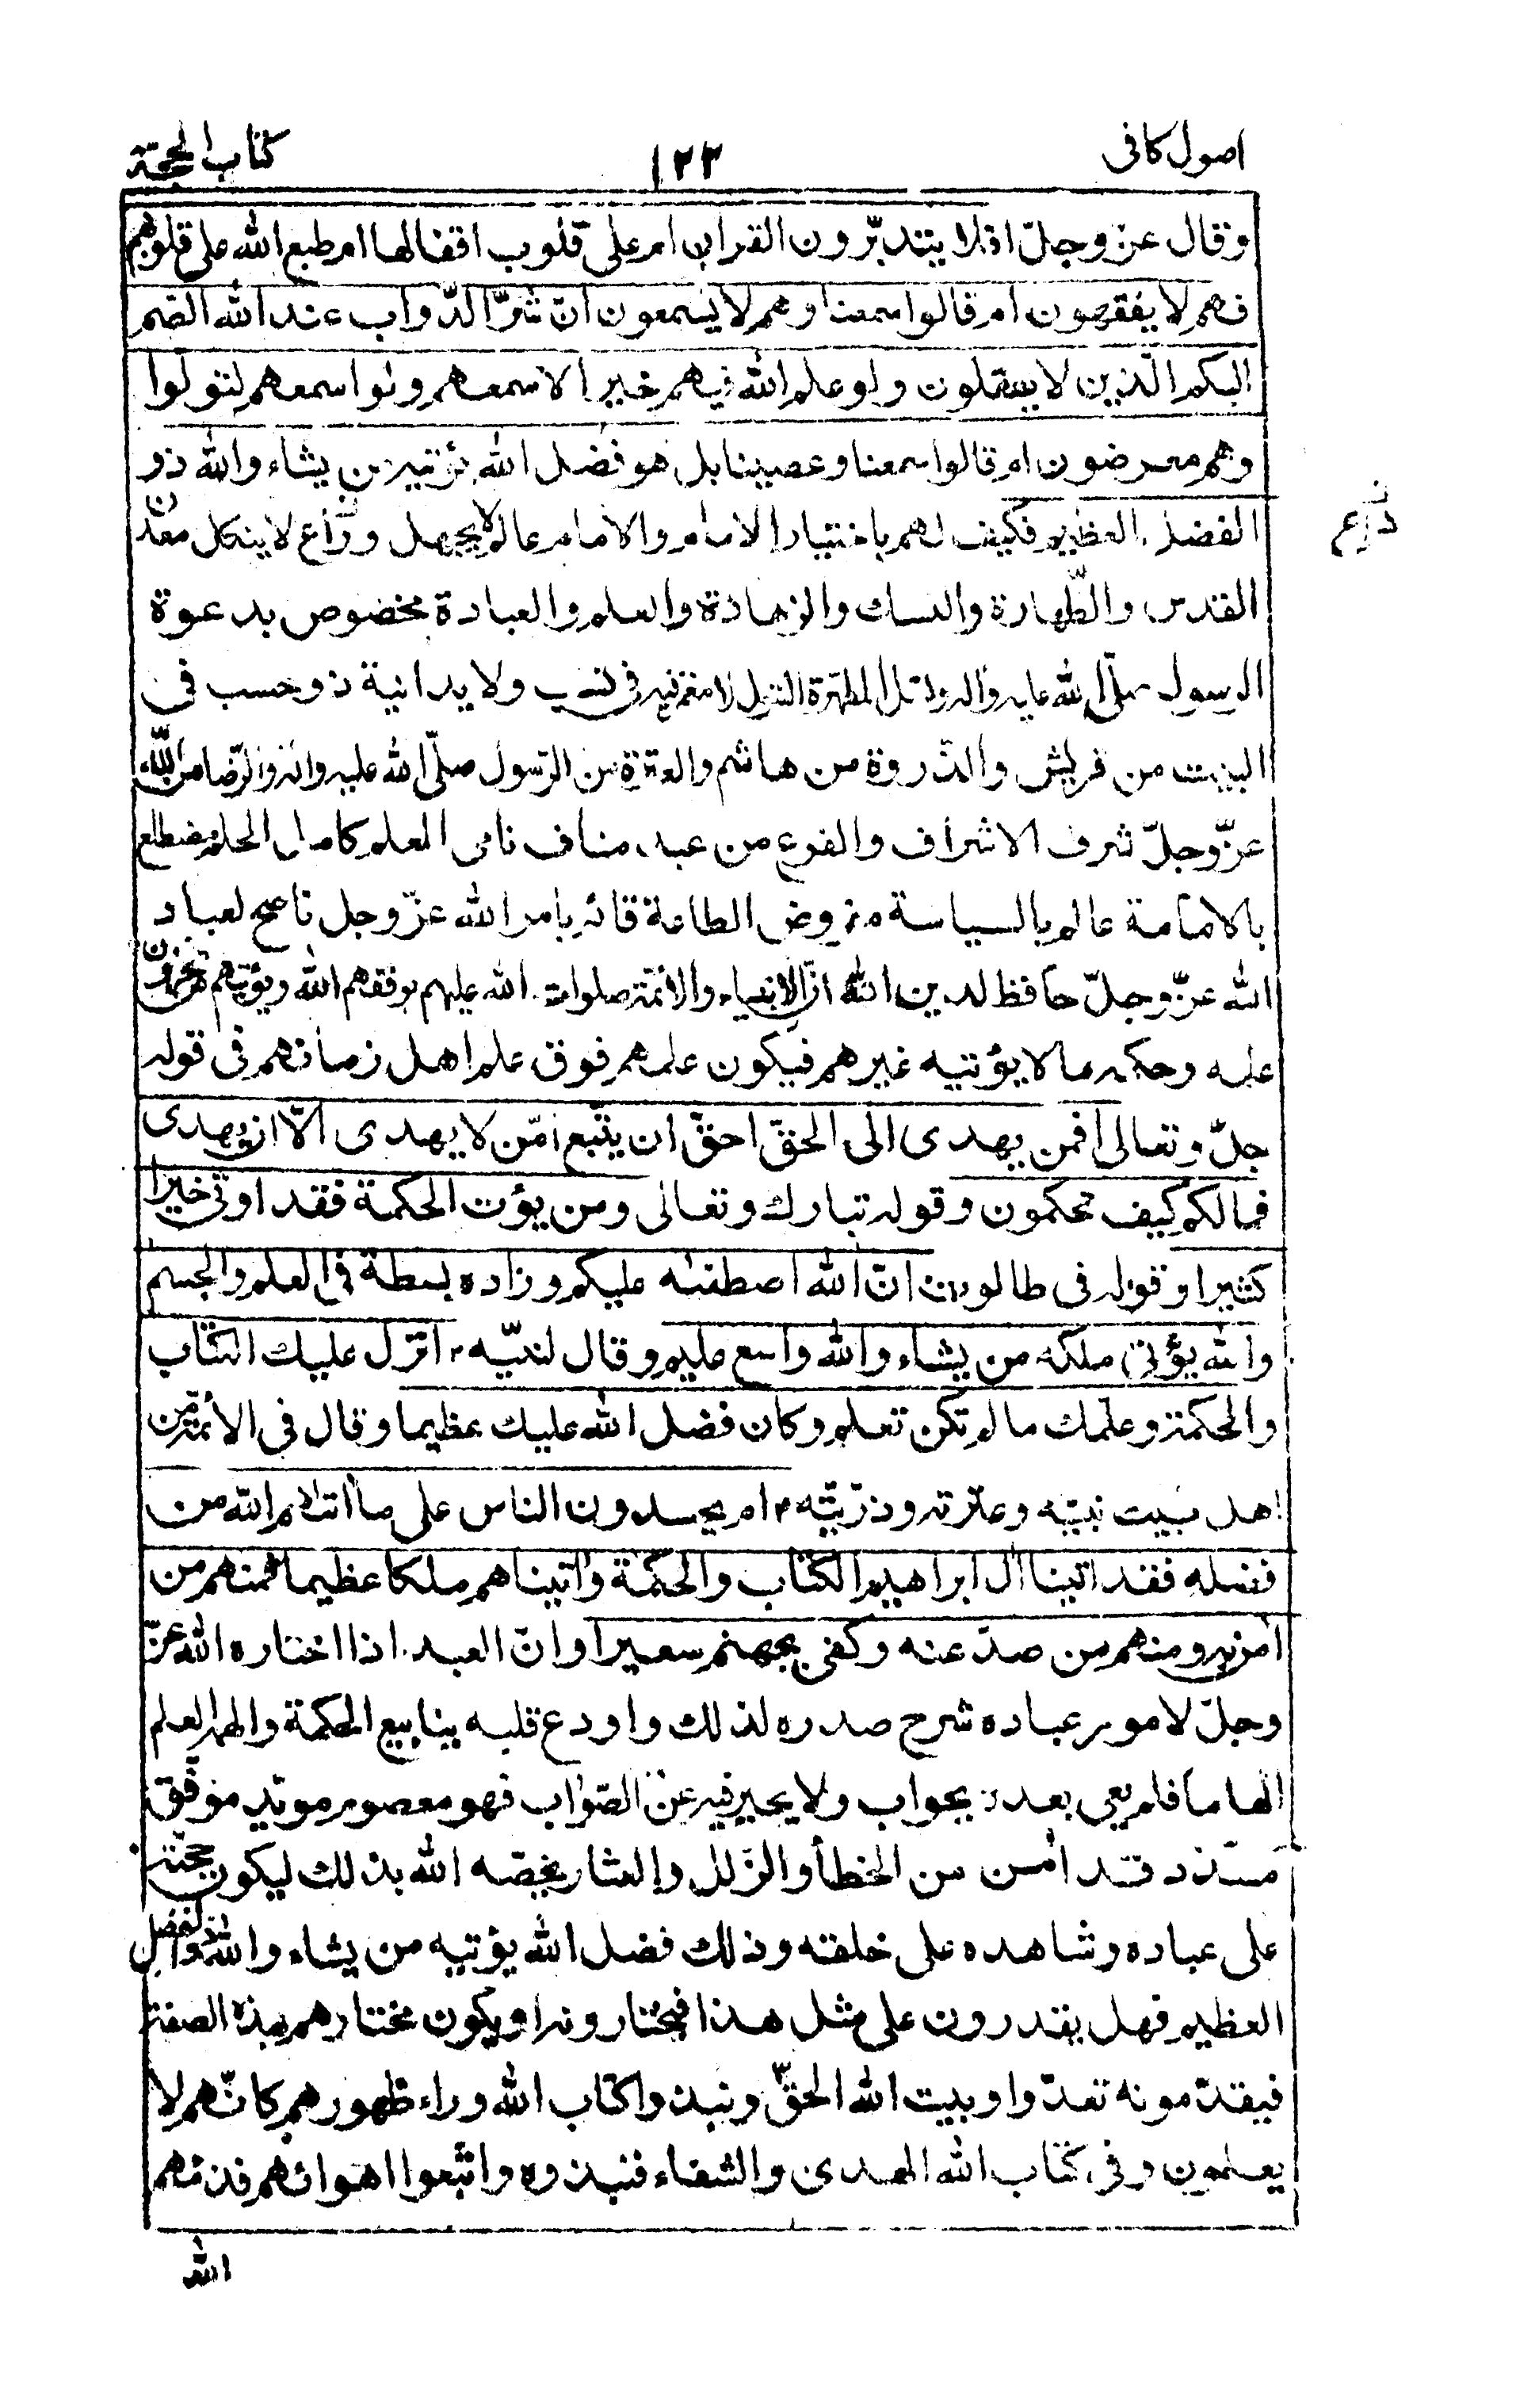 اصول كافى
١٢٣
كتاب الحجة
وقال عزوجلّ افلا يتدبّرون القران ام على قلوب اقفالها ام طبع الله على قلوبهم
فهم لا يفقهون ام قالوا سمعنا وهم لا يسمعون انّ شرّ الدّواب عند الله الصّم
البكم الّذين لا يعقلون ولو علم الله فيهم خيرا لاسمعهم ولو اسمعهم لتولوا
وهم معرضون ام قالوا سمعنا وعصينا بل هو فضل الله يؤتيه من يشاء والله ذو
الفضل العظيم فكيف لهم باختيار الامام والامام عالم لا يجهل وراع لا ينكل معدن
القدس والطّهارة والنسك والزهادة والعلم والعبادة مخصوص بدعوة
الرسول صلّى الله عليه واله ونسل المطهّرة البتول لا مغمز فيه فى نسب ولا يدانية ذو حسب فى
البيت من قريش والذّروة من هاشم والعترة من الرّسول صلّى الله عليه واله والرّضا من الله
عزّوجلّ شرف الاشراف والفرع من عبد مناف نامى العلم كامل الحلم مضطلع
بالامامة عالم بالسياسة مفروض الطاعة قائم بامر الله عزّوجل ناصح لعباد
الله عزّوجلّ حافظ لدين الله انّ الانبياء والائمّة صلوات الله عليهم يوفقهم الله ويؤتيهم من مخزون
علمه وحكمه ما لا يؤتيه غيرهم فيكون علمهم فوق علم اهل زمانهم فى قوله
جلّ وتعالى افمن يهدى الى الحقّ احقّ ان يتّبع امّن لا يهدى الّا ان يهدى
فمالكم كيف تحكمون وقوله تبارك وتعالى ومن يؤت الحكمة فقد اوتى خيرا
كثيرا وقوله فى طالوت انّ الله اصطفيه عليكم وزاده بسطة فى العلم والجسم
والله يؤتى ملكه من يشاء والله واسع عليم وقال لنبيّه م انزل عليك الكتاب
والحكمة وعلّمك ما لم تكن تعلم وكان فضل الله عليك عظيما وقال فى الأئمّة من
اهل بيت نبيّه وعترته وذرّيّته م ام يحسدون الناس على ما اتاهم الله من
فضله فقد اتينا ال ابراهيم الكتاب والحكمة واتيناهم ملكا عظيما فمنهم من
امن به ومنهم من صدّ عنه وكفى بجهنم سعيرا وانّ العبد اذا اختاره الله عزّ
وجلّ لامور عباده شرح صدره لذلك واودع قلبه ينابيع الحكمة والهمه العلم
الهاما فلم يعى بعده بجواب ولا يحير فيه عن الصّواب فهو معصوم مويّد موفّق
مسدّد قد امن من الخطأ والزّلل والعثار يخصّه الله بذلك ليكون حجّته
على عباده وشاهده على خلقه وذلك فضل الله يؤتيه من يشاء والله ذو الفضل
العظيم فهل يقدرون على مثل هذا فيختارونه او يكون مختارهم بهذه الصفة
فيقدّمونه تعدّوا وبيت الله الحقّ ونبذوا كتاب الله وراء ظهورهم كانّهم لا
يعلمون وفى كتاب الله الهدى والشفاء فنبذوه واتّبعوا اهوائهم فذمّهم
الله